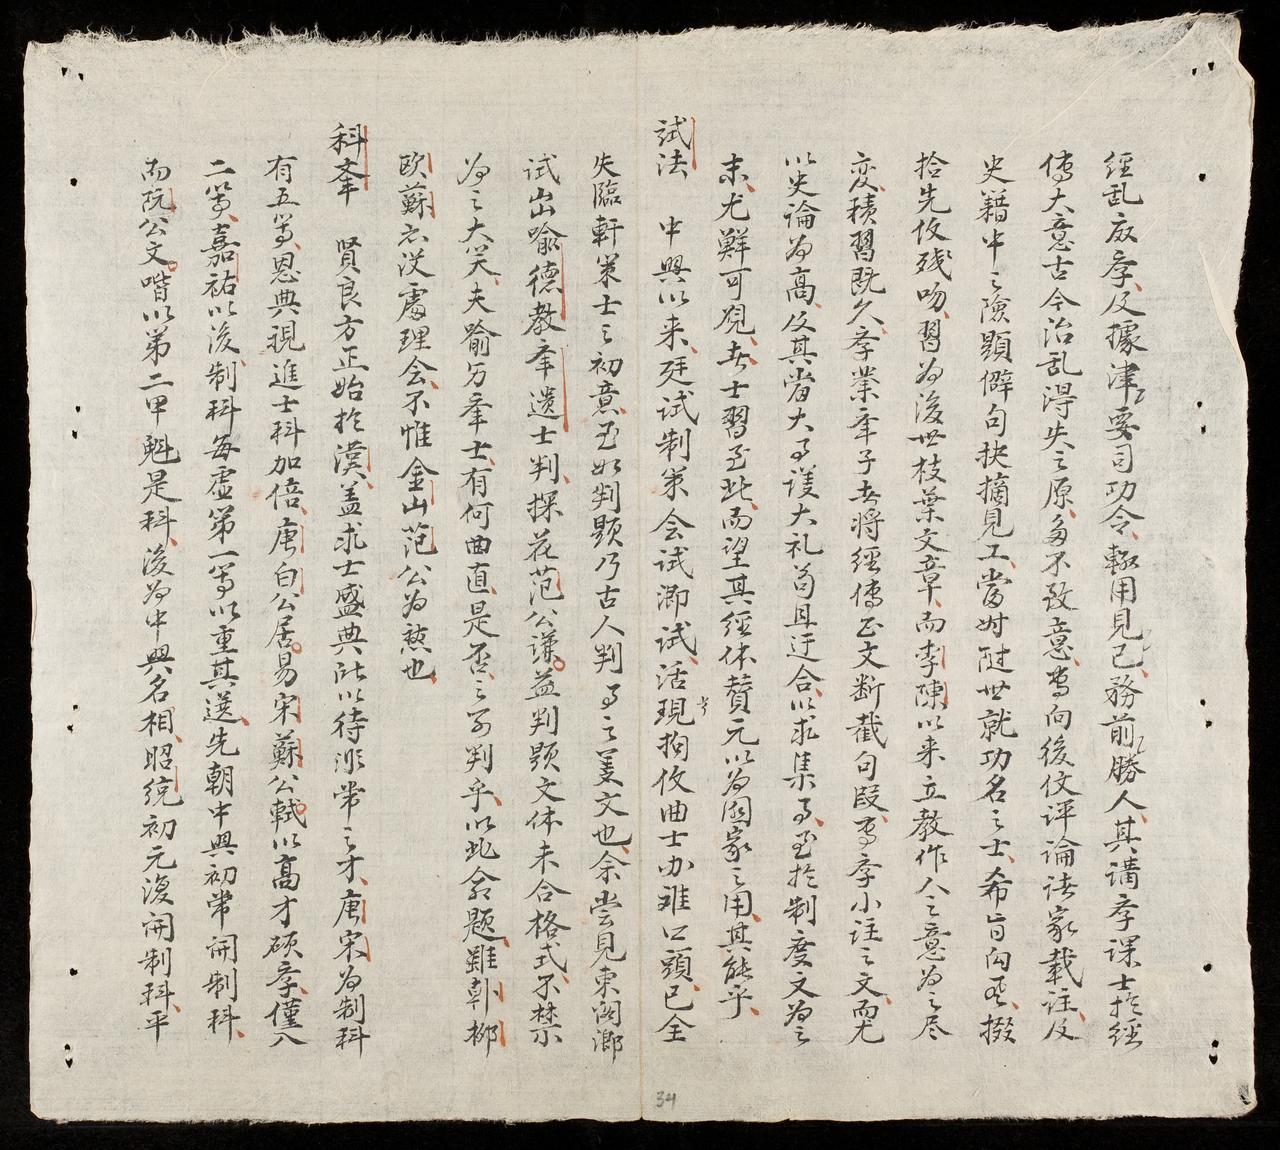 經乱廢孝及據津要司功令輙用見己務前勝人其講孝課士於經
傳大意古今治乱淂失之原多不致意嚮向後伩評論諸家載註及
史籍中之險題僻句抉摘見工當时隨世就功名之士希旨向啚掇
拾先伩殘吻習为後世枝葉文章而李陳以来立教作人之意为之尽
変積習既久孝業举子者將經傳正文断截句段専孝小註之文而尤
以史論为高及其當大事議大礼苟且迂合以求集事至於制度文为之
末尤鮮可覌者士習至此而望其經体贊元以为國家之用其能乎
試法 中興以来廷試制策会試鄉試活現拘伩曲士办难口頭已全
失臨軒策士之初意至如判题乃古人判事之美文也余尝見東閣鄉
試出喩德教举遺士判探花范公謙益判题文体未合格式不禁
为之大笑夫踰另举士有何曲直是否之可判乎以此命题雖韩柳
欧蘇亦没處理会不惟金山范公为愁也
科举 賢良方正始於漢盖求士盛典所以待非常之才唐宋为制科
有五等恩典現進士科加倍唐白公居易宋蘇公軾以高才硕孝僅入
二等嘉祐以後制科每虚第一等以重其選先朝中興初常開制科
而阮公文喈以第二甲魁是科後为中興名相昭統初元復開制科平
34